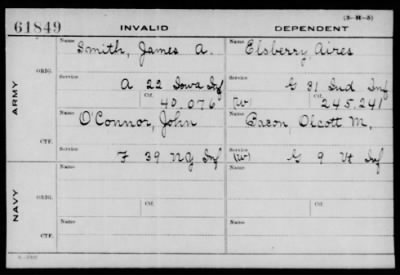 (3-H-5)
61849 INVALID DEPENDENT
Name Smith, James A. Name Elsberry, Aires
ARMY ORIG. Service A 22 Iowa Inf Service G 31 Ind Inf
Ctf. 40,076 (W) Ctf. 245,241
CTF. Name O'Connor, John Name Bacon, Olcott M.
Service F 39 NG Inf Service (W) G 9 Vt Inf
NAVY ORIG. Name Name
Service Service
Ctf. Ctf.
CTF. Name Name
Service Service